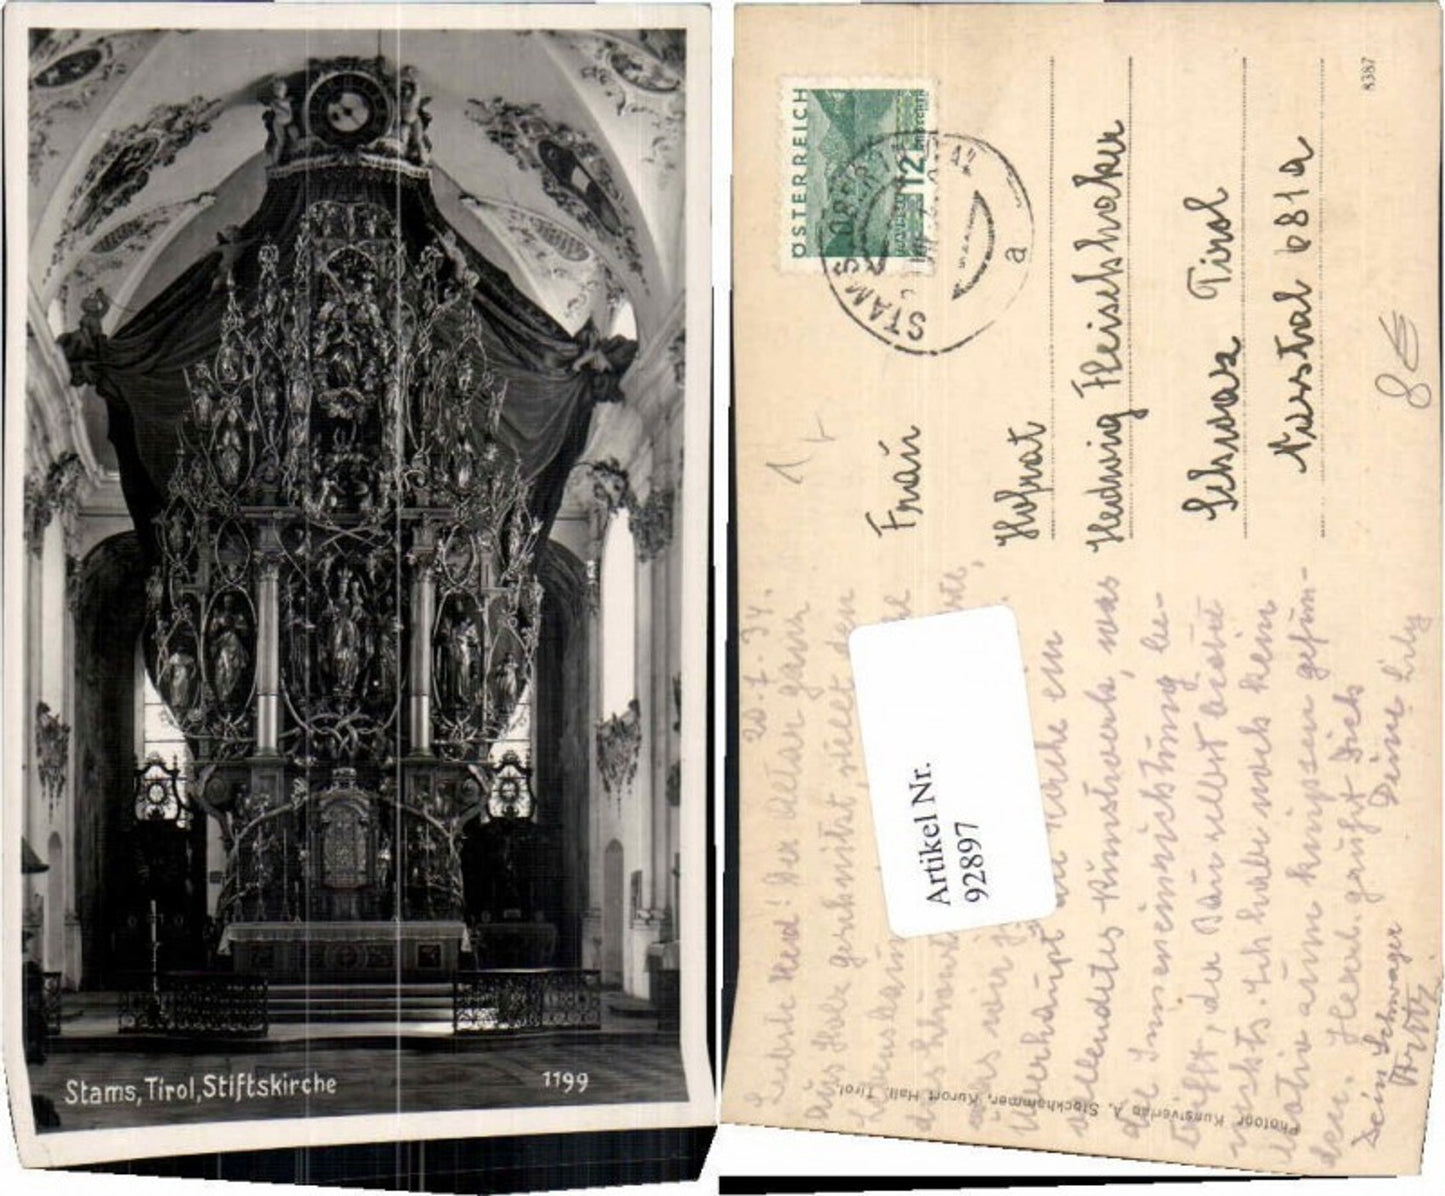 Stams, Tirol, Stiftskirche
1199
ÖSTERREICH
12
STAMS
a
8387
Frau
Hofrat
Hedwig Fleischhaker
Schwaz Tirol
Nusstal 681a
8€
Artikel Nr.
92897
34.
Liebste Hed! Der Altar ganz
aus Holz geschnitzt, stellt den
Überhaupt die Kirche ein
vollendetes Kunstwerk, was
die Inneneinrichtung be-
trifft, der Bau selbst besagt
nichts. Ich habe noch kein
Motiv zum knipsen gefun-
den. Herzl. grüßt Dich
Deine Lily
Dein Schwager
Fritz.
Photogr. Kunstverlag A. Stockhammer, Kurort Hall, Tirol